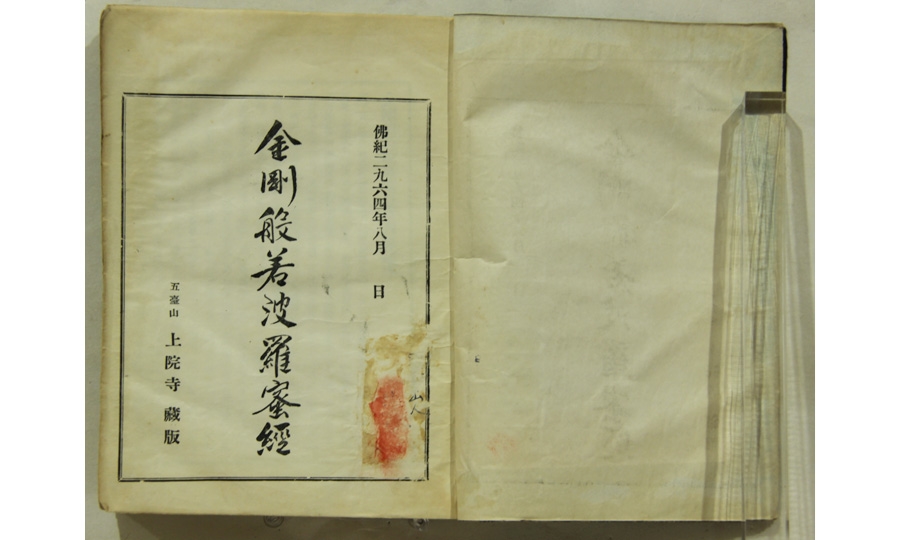 佛紀二九六四年八月 日
金剛般若波羅蜜經
五臺山 上院寺 藏版
山人